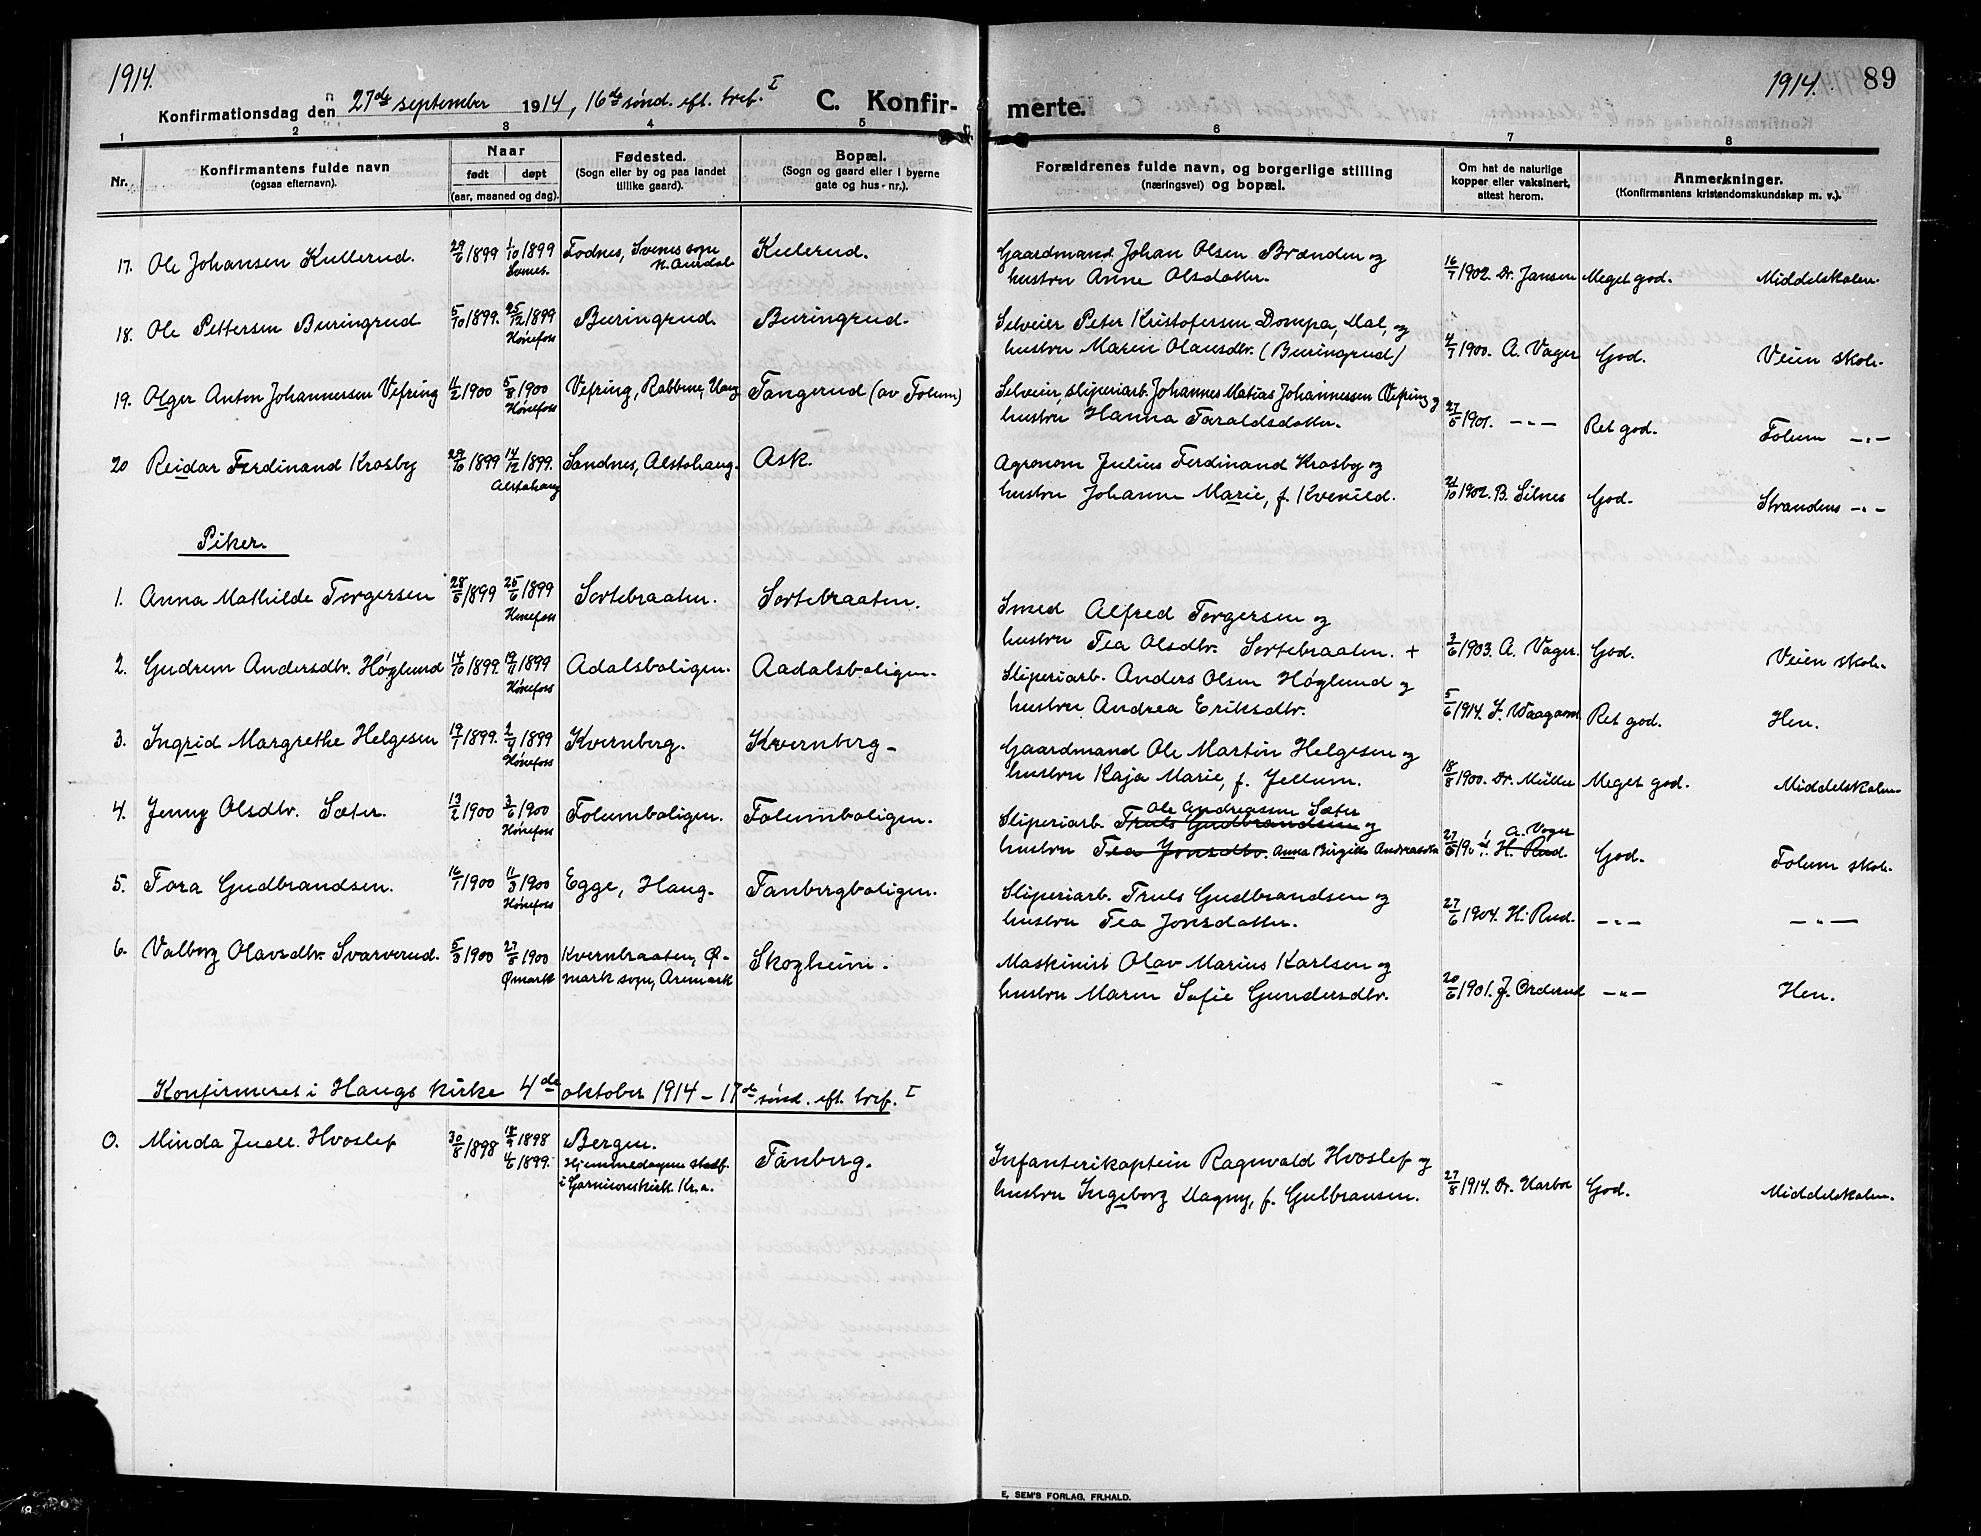 1914.
Konfirmationsdag den 27de september 1914, 16de sønd. eft. tref. I C. Konfir-
1 2 3 4 5
Nr. Konfirmantens fulde navn (ogsaa efternavn). Naar født døpt (aar, maaned og dag). Fødested. (Sogn eller by og paa landet tillike gaard). Bopæl. (Sogn og gaard eller i byerne gate og hus-nr.).
17. Ole Johansen Kullerud. 29/6 1899 1/10 1899 Svenes. Fodnes, Svenes sogn N. Aurdal Kulerud.
18. Ole Pettersen Buringrud 5/10 1899. 25/12 1899 Hønefoss Buringrud. Buringrud.
19. Olger Anton Johannessen Vefring 4/2 1900 5/8 1900 Hønefoss Vefring, Rabbene, Tangerud (av Folum)
20 Reidar Ferdinand Krosby 29/6 1899 17/12 1899. Alstahaug Sandnes, Alstahaug. Ask.
Piker.
1. Anna Mathilde Torgersen 28/5 1899 25/6 1899 Hønefoss Sortebraaten. Sortebraaten.
2. Gudrun Andersdtr. Høglund 14/10 1899. 19/11 1899 Hønefoss Adalsboligen. Aadalsboligen.
3. Ingrid Margrethe Helgesen 19/7 1899. 2/9 1899 Hønefoss Kvernberg. Kvernberg
4. Jenny Olsdtr. Sæter. 13/2 1900 3/6 1900 Hønefoss Folumboligen. Folumboligen.
5. Tora Gudbrandsen. 16/1 1900 11/3 1900 Hønefoss Egge, Haug. Tanbergboligen.
6. Valborg Olavsdtr. Svarverud. 5/3 1900 27/5 1900 Ømark Kvernbraaten, Ø-mark sogn, Aremark Skogheim.
Konfirmeret i Haugs kirke 4de oktober 1914 – 17de sønd. eft. tref. I
0. Minda Juell Hvoslef 30/8 1898 18/9 1898 4/6 1899. Bergen. Hjemmedaapen stadf. i Garnisonskirk. Kr.a. Tanberg.
1914. 89
merte.
6 7 8
Forældrenes fulde navn, og borgerlige stilling (næringsvei) og bopæl. Om hat de naturlige kopper eller vaksinert, attest herom. Anmerkninger. (Konfirmantens kristendomskundskap m. v.).
Gaardmand Johan Olsen Brænden og
hustru Anne Olsdatter. 16/7 1902. Dr. Jansen Meget god. Middelskolen.
Selveier Peter Kristofersen Dompa, Dal, og
hustru Maren Olausdtr. (Buringrud) 4/7 1900. A. Vager God. Veien skole.
Selveier, sliperiarb. Johannes Matias Johannessen Vefring og
hustru Hanna Taraldsdatter. 27/5 1901. –"– Ret god. Folum –"–
Agronom Julius Ferdinand Krosby og
hustru Johanne Marie, f. Kvenild. 21/10 1902. B. Silnes God. Strandens –"–
Smed Alfred Torgersen og
hustru Tea Olsdtr. Sortebraaten. + 3/6 1903. A. Vager. God. Veien skole.
Sliperiarb. Anders Olsen Høglund og
hustru Andrea Eriksdtr. 5/6 1914. Ret god. Hen.
Gaardmand Ole Martin Helgesen og
hustru Kaja Marie, f. Jellum. 18/8 1900. Dr. Müller Meget god. Middelskolen.
Ole Andreassen Sæter
Sliperiarb. Truls Gudbrandsen og A. Vager
hustru Tea Jonsdtr. Anna Birgitte 27/6 H. Rud. God. Folum skole.
Sliperiarb. Truls Gudbrandsen og
hustru Tea Jonsdatter. 27/6 1904. H. Rud. –"– –"–
Maskinist Olav Marius Karlsen og
hustru Maren Sofie Gundersdtr. 20/6 1901. J. Orderud –"– Hen.
Infanterikaptein Ragnvald Hvoslef og
hustru Ingeborg Dagny, f. Gulbransen. 27/8 1914. Dr. Harboe God. Middelskolen.
E. SEM'S FORLAG, FR.HALD.